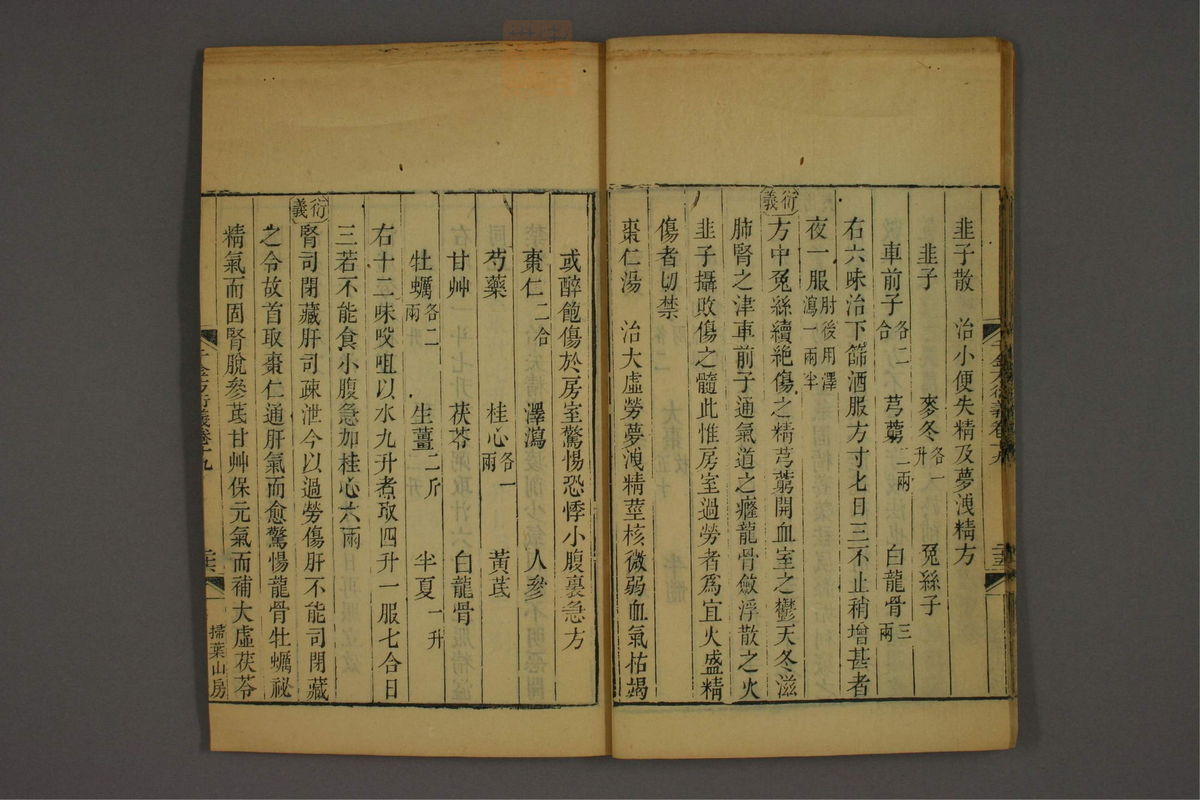 韭子散　治小便失精及夢洩精方
韭子　麥冬各一升　菟絲子
車前子各二合　芎藭二兩　白龍骨三兩
右六味治下篩酒服方寸匕日三不止稍增甚者
夜一服肘後用澤瀉一兩半
衍義
方中菟絲續絶傷之精芎藭開血室之鬱天冬滋
肺腎之津車前子通氣道之癃龍骨斂浮散之火
韭子攝敗傷之髓此惟房室過勞者爲宜火盛精
傷者切禁
棗仁湯　治大虛勞夢洩精莖核微弱血氣枯竭
千金方衍義卷十九　二十五
或醉飽傷於房室驚惕恐悸小腹裏急方
棗仁二合　澤瀉　人參
芍藥　桂心各一兩　黃芪
甘艸　茯苓　白龍骨
牡蠣各二兩　生薑二斤　半夏一升
右十二味㕮咀以水九升煮取四升一服七合日
三若不能食小腹急加桂心六兩
衍義
腎司閉藏肝司疎泄今以過勞傷肝不能司閉藏
之令故首取棗仁通肝氣而愈驚惕龍骨牡蠣祕
精氣而固腎脫參芪甘艸保元氣而補大虛茯苓
千金方衍義卷十九　二十六　掃葉山房